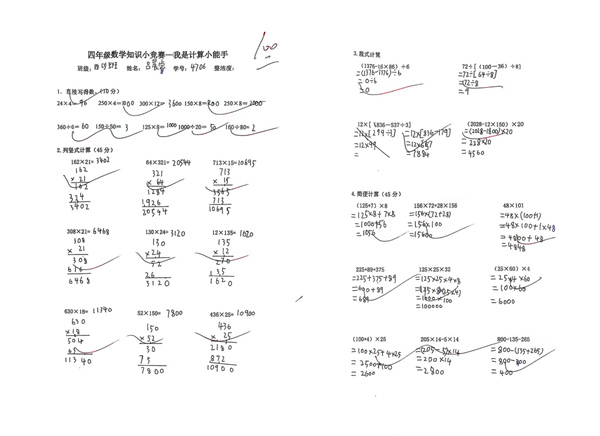 四年级数学知识小竞赛—我是计算小能手
100
班级: 四(4)班 姓名: 学号: 4706 整洁度:
1. 直接写得数。(10分)
24×4=96 250×4=1000 300×12=3600 150×8= 250×8=2000
360÷6=60 150÷50=3 125×8=1000 1000÷20=50 160÷80=2
2. 列竖式计算(45分)
162×21=3402 64×321=20544 713×15=10695
162 321 713
×21 ×64 ×15
162 1284 3565
324 1926 713
3402 20544 10695
308×21=6468 130×24=3120 12×135=1620
308 130 135
×21 ×24 ×12
308 52 270
616 26 135
6468 3120 1620
630×18=11340 52×150=7800 436×25=10900
630 150 436
×18 ×52 ×25
504 30 2180
63 75 872
11340 7800 10900
3. 脱式计算
(1376-16×86)÷6 72÷[(100-36)÷8]
=(1376-1376)÷6 =72÷[64÷8]
=0÷6 =72÷8
=0 =9
12×[836-537÷3] (2028-12×150)×20
=12×[836-179] =(2028-1800)×20
=12×657 =228×20
=7884 =4560
4. 简便计算(45分)
(125+7)×8 156×72+28×156 48×101
=125×8+7×8 =156×(72+28) =48×(100+1)
=1000+56 =156×100 =48×100+1×48
=1056 =15600 =4800+48
=4848
225+89+375 125×25×32 (25×60)×4
=225+375+89 =125×25×4×8 =25×4×60
=600+89 =(125×8)×(25×4) =100×60
=689 =1000×100 =6000
=100000
(100+4)×25 205×14-5×14 800-135-265
=100×25+4×25 =(205-5)×14 =800-(135+265)
=2500+100 =200×14 =800-400
=2600 =2800 =400